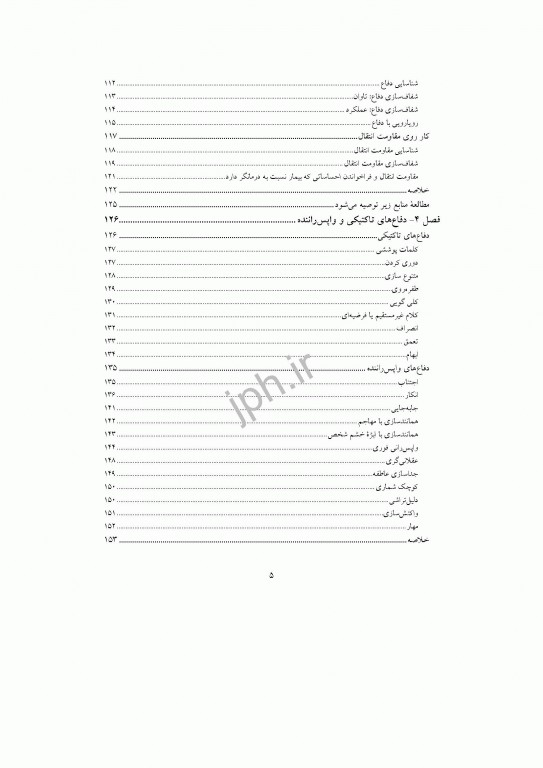 شناسایی دفاع ........ ۱۱۲
شفاف‌سازی دفاع: تاوان ........ ۱۱۳
شفاف‌سازی دفاع: عملکرد ........ ۱۱۴
رویارویی با دفاع ........ ۱۱۵
کار روی مقاومت انتقال ........ ۱۱۷
شناسایی مقاومت انتقال ........ ۱۱۸
شفاف‌سازی مقاومت انتقال ........ ۱۱۹
مقاومت انتقال و فراخواندن احساساتی که بیمار نسبت به درمانگر دارد ........ ۱۲۱
خلاصه ........ ۱۲۲
مطالعهٔ منابع زیر توصیه می‌شود ........ ۱۲۵
فصل ۴- دفاع‌های تاکتیکی و واپس‌راننده ........ ۱۲۶
دفاع‌های تاکتیکی ........ ۱۲۶
کلمات پوششی ........ ۱۲۷
دوری کردن ........ ۱۲۷
متنوع سازی ........ ۱۲۸
طفره‌روی ........ ۱۲۹
کلی گویی ........ ۱۳۰
کلام غیرمستقیم یا فرضیه‌ای ........ ۱۳۱
انصراف ........ ۱۳۲
تعمق ........ ۱۳۳
ابهام ........ ۱۳۴
دفاع‌های واپس‌راننده ........ ۱۳۵
اجتناب ........ ۱۳۵
انکار ........ ۱۳۶
جابه‌جایی ........ ۱۴۱
همانندسازی با مهاجم ........ ۱۴۲
همانندسازی با ابژهٔ خشم شخص ........ ۱۴۳
واپس‌رانی فوری ........ ۱۴۴
عقلانی‌گری ........ ۱۴۸
جداسازی عاطفه ........ ۱۴۹
کوچک شماری ........ ۱۵۰
دلیل‌تراشی ........ ۱۵۰
واکنش‌سازی ........ ۱۵۱
مهار ........ ۱۵۲
خلاصه ........ ۱۵۳
۵
jph.ir